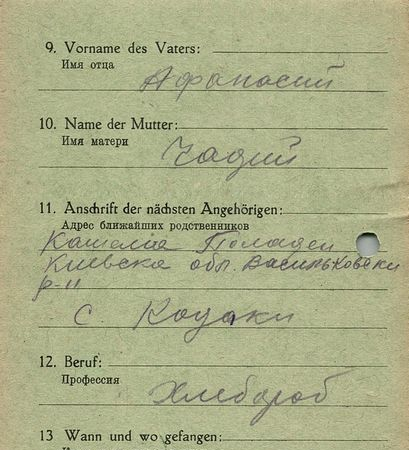 9. Vorname des Vaters:
Имя отца
Афанасий
10. Name der Mutter:
Имя матери
11. Anschrift der nächsten Angehörigen:
Адрес ближайших родственников
Киевска обл. Васильковски
р-н
с. Козаки
12. Beruf:
Профессия
Хлебороб
13 Wann und wo gefangen: